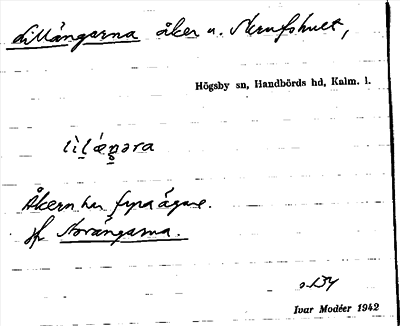 Lillängarna åker u. Nerufshult,
Högsby sn, Handbörds hd, Kalm. l.
Åkern har fyra ägare.
jfr Norängarna.
Ivar Modéer 1942